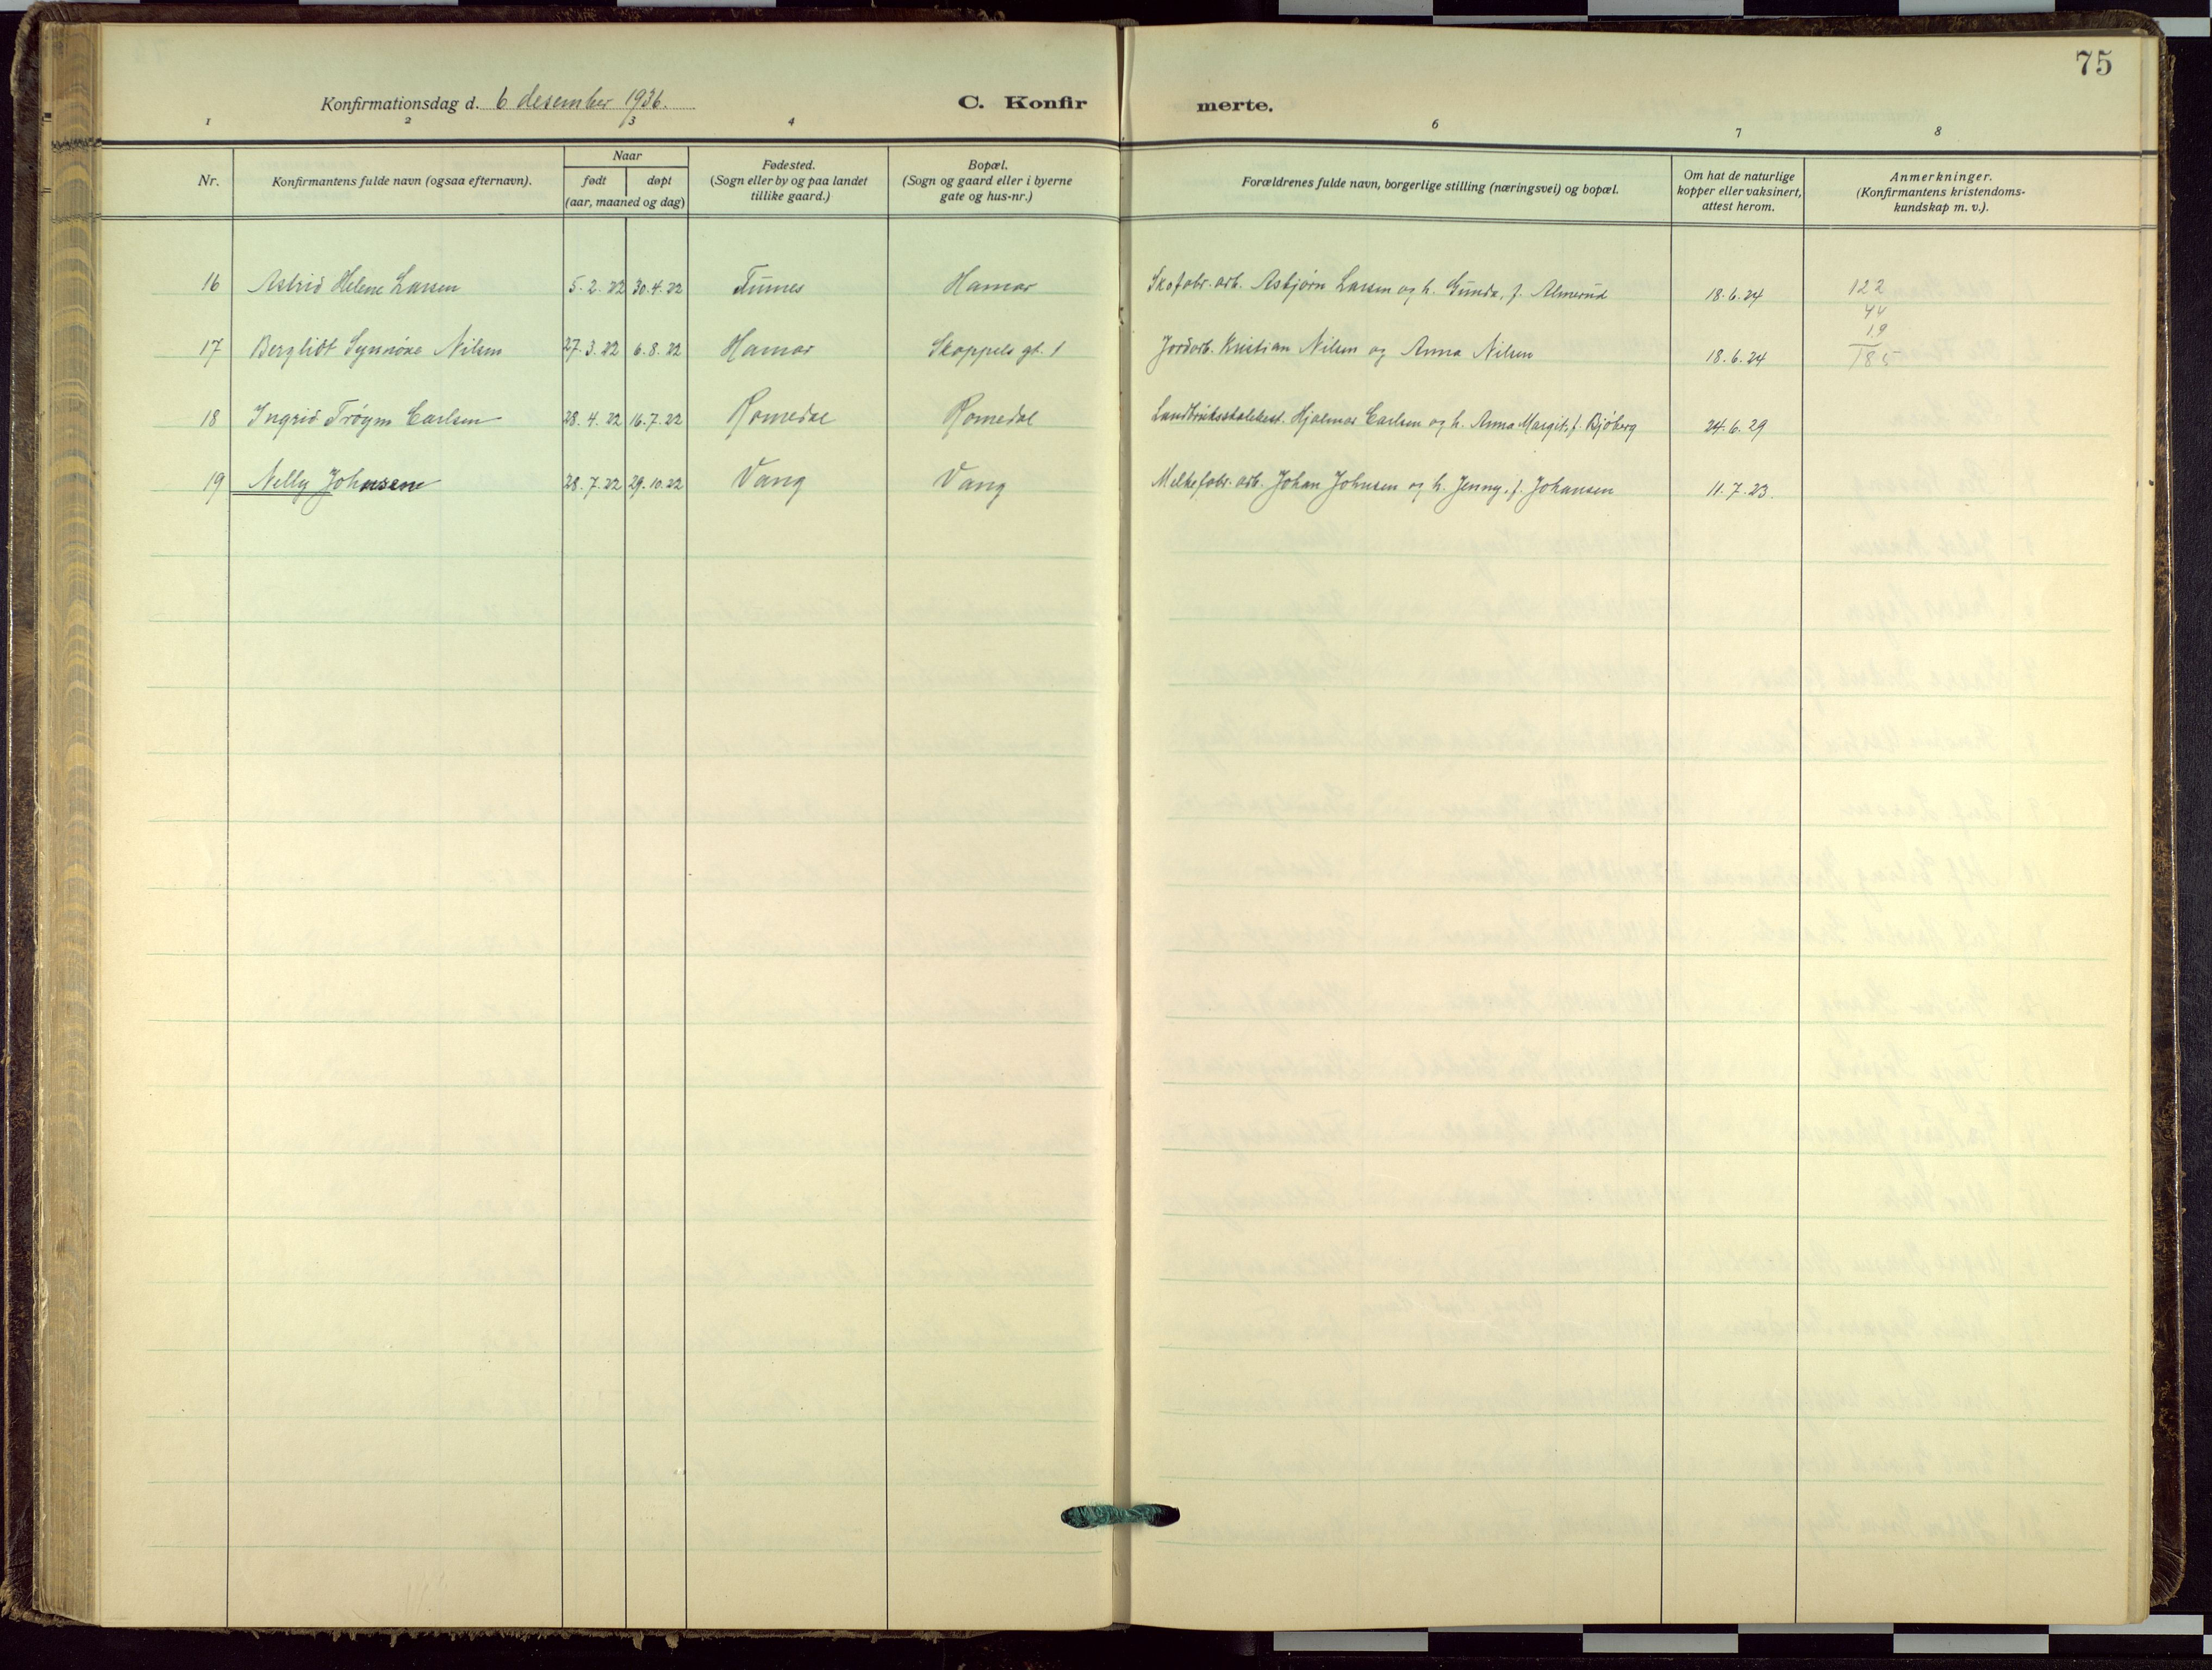 75
Konfirmationsdag d. 6 desember 1936. C. Konfir merte.
1 2 3 4 6 7 8
Nr. Konfirmantens fulde navn (ogsaa efternavn). Naar født døpt (aar, maaned og dag) Fødested. (Sogn eller by og paa landet tillike gaard.) Bopæl. (Sogn og gaard eller i byerne gate og hus-nr.) Forældrenes fulde navn, borgerlige stilling (næringsvei) og bopæl. Om hat de naturlige kopper eller vaksinert, attest herom. Anmerkninger. (Konfirmantens kristendoms-kundskap m. v.).
16 Astrid Helene Larsen 5.2.22 30.4.22 Furnes Hamar Skofabr. arb. Asbjørn Larsen og h. Gunda, f. Almerud 18.6.24 122
44
19
17 Bergliot Synnöve Nilsen 27.3.22 6.8.22 Hamar Skappels gt. 1 Jordarb. Kristian Nilsen og Anna Nilsen 18.6.24 185
18 Ingrid Tröym Carlsen 28.4.22 16.7.22 Romedal Romedal Hjalmar Carlsen og h. Anna Margit, f. Bjöberg 24.6.29
19 Nelly Johnsen 28.7.22 29.10.22 Vang Vang Melkefabr. arb. Johan Johnsen og h. Jenny, f. Johansen 11.7.23.